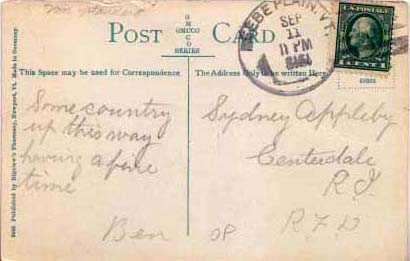 POST CARD
OMCCO
SERIES
This Space may be used for Correspondence
The Address Only to be written Here
BEEBE PLAIN, VT.
SEP
11
11 PM
U.S. POSTAGE
1 CENT 1
Some country
up this way
having a fine
time
Ben
Sydney Appleby
Centerdale
R.I.
R.F.D
OP
Published by Bigelow's Pharmacy, Newport, Vt. Made in Germany.